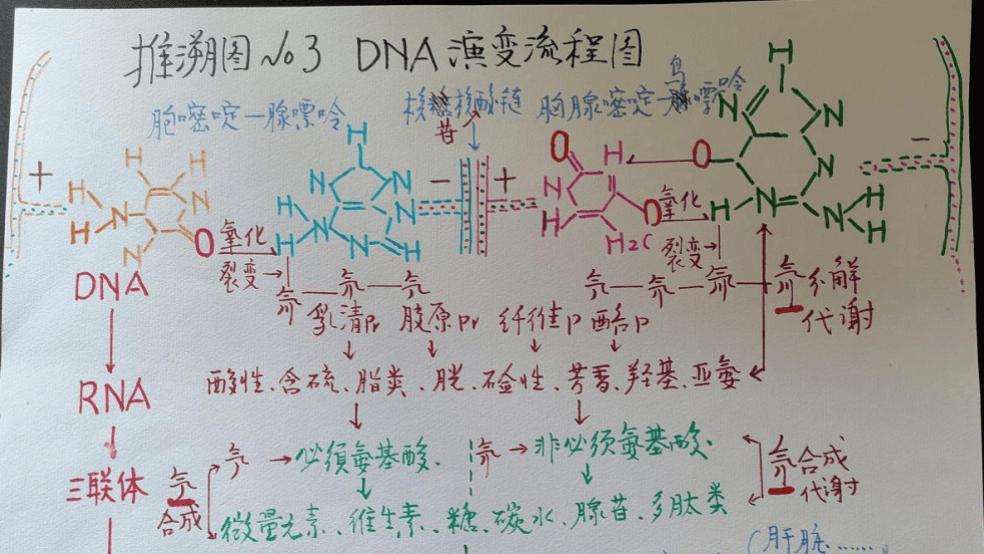 推溯图 No 3 DNA演变流程图
胞嘧啶—腺嘌呤
核苷核酸链
胸腺嘧啶—鸟嘌呤
+ − + −
H H H H H H
N N N N N N N N
H N O H N N N H O O H N N H
H N H H₂C H
氧化
裂变→
氧化
裂变→
DNA
氕 氘 氚
氕—氘—氚—氕分解
代谢
乳清pr 胶原pr 纤维p 酪p
RNA
酸性、含硫、脂类、胱、硷性、芳香、羟基、亚氨
三联体
氕→必须氨基酸.
氕→非必须氨基酸.
氕
合成
氕合成
代谢
微量元素、维生素、糖、碳水、腺苷、多肽类
(肝脏……